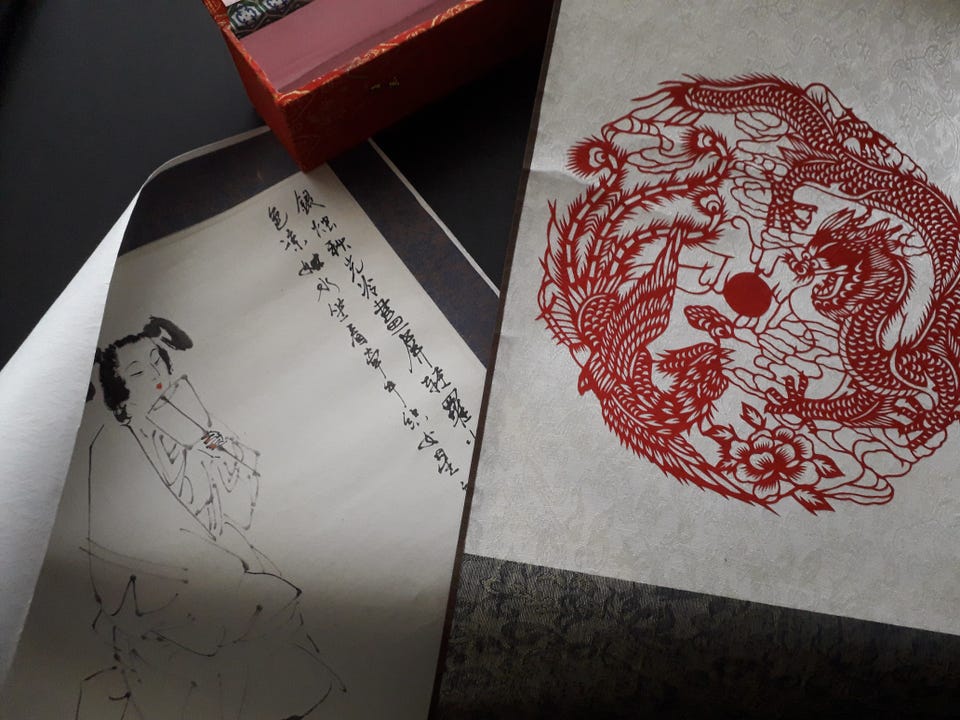 銀燭秋光冷畫屏輕羅小
色涼如水坐看牽牛織女星